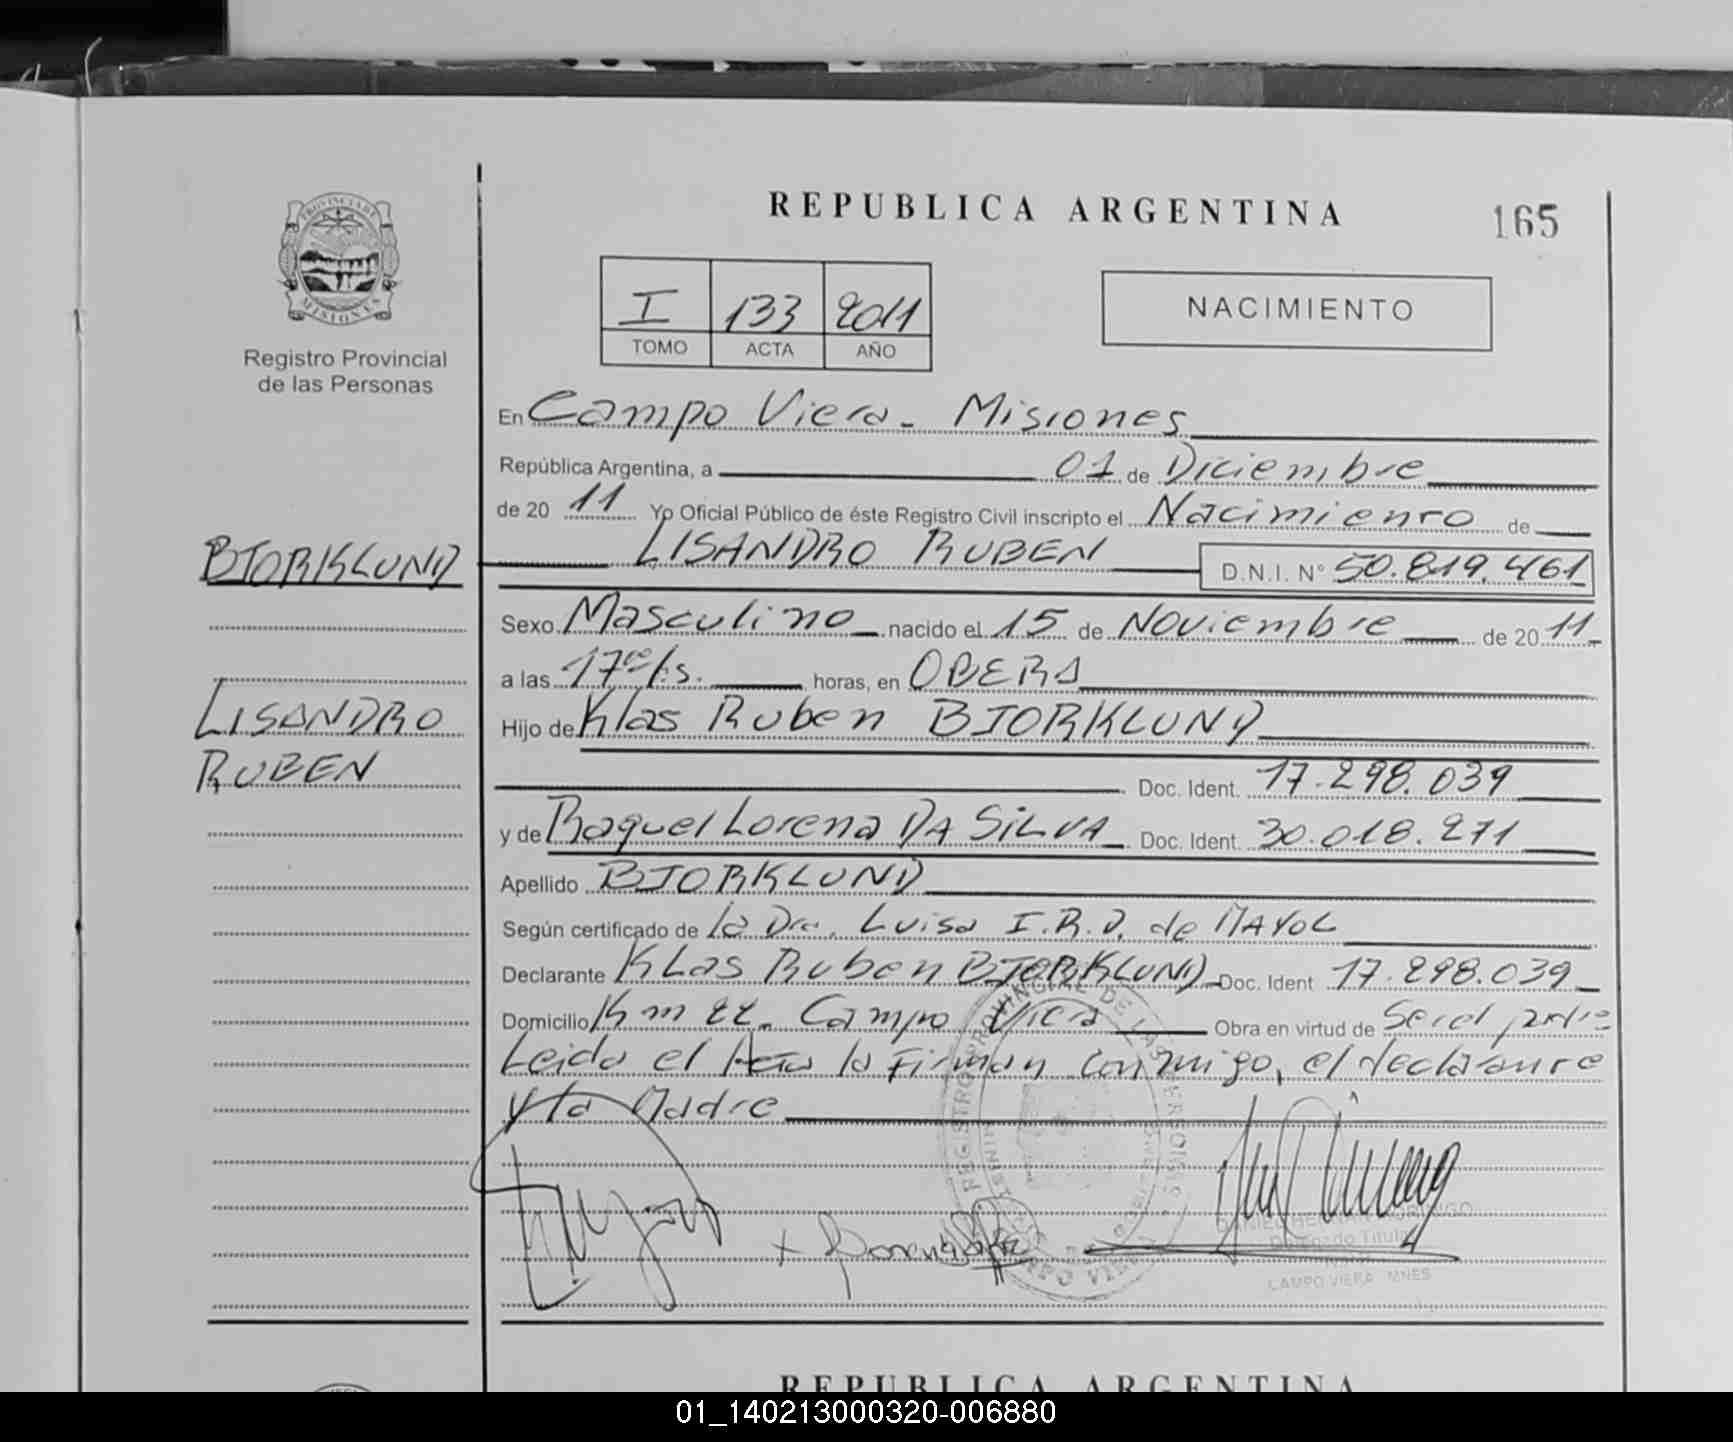 REPUBLICA ARGENTINA
165
PROVINCIA DE MISIONES
Registro Provincial
de las Personas
I 133 2011
TOMO ACTA AÑO
NACIMIENTO
En Campo Viera - Misiones
República Argentina, a 01 de Diciembre
de 20 11 Yo Oficial Público de éste Registro Civil inscripto el Nacimiento de
BJORKLUND
LISANDRO RUBEN D.N.I. N° 50.819.461
Sexo Masculino nacido el 15 de Noviembre de 20 11
a las 17 00 hs. horas, en OBERA
LISANDRO
RUBEN
Hijo de Klas Ruben BJORKLUND
Doc. Ident. 17.298.039
y de Raquel Lorena DA SILVA Doc. Ident. 30.018.271
Apellido BJORKLUND
Según certificado de la Dra. Luisa I.R.D. de MAYOL
Declarante KLas Ruben BJORKLUND Doc. Ident 17.298.039
Domicilio Km 22. Campo Viera Obra en virtud de Ser el padre
Leida el Acta la Firman conmigo, el declarante
y la Madre
REGISTRO PROVINCIAL DE LAS PERSONAS
CAMPO VIERA
Delegado Titular
CAMPO VIERA MNES
REPUBLICA ARGENTINA
01_140213000320-006880